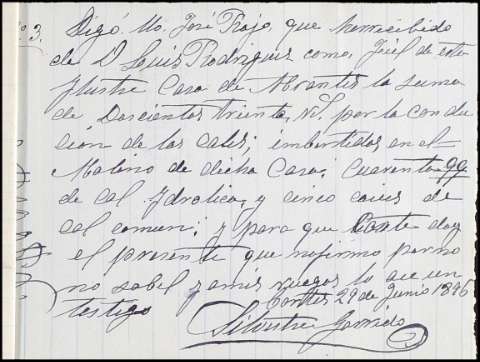 Nº 3.
Digó Yo. José Rojo, que hé rrecibido
de D Luis Rodrigues como, Fiel de este
Ylustre Casa de Abrantes la suma
de Doscientos treinta, rs. por la condu
cion de las cales; imbertidos en el
Molino de dicha Casa; Cuarenta qq.
de cal Ydrolica, y cinco caices de
cal comun; y para que Conste doy
el presente que nofirmo por no
no sabel y amis ruegos lo ace un
testigo
29 de Junio 1896
Silvestre Garrido